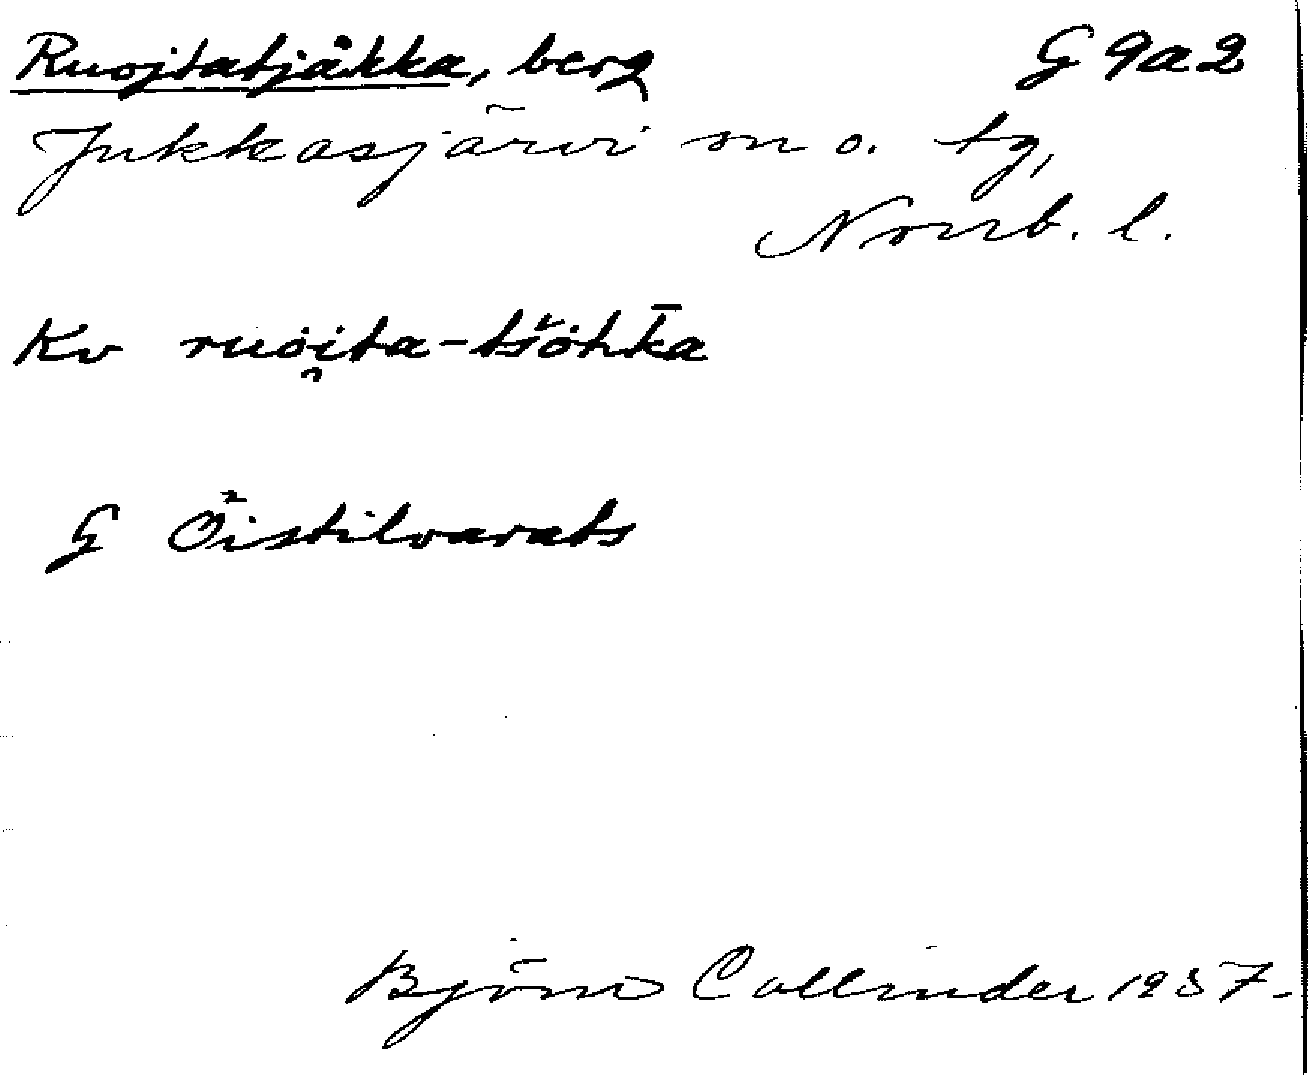 Ruojtatjåkka, berg G 9a2
Jukkasjärvi sn o. tg,
Norrb. l.
Kv ruoi̯ta-tšohk̄a
G Öistilvarats
Björn Collinder 1957.